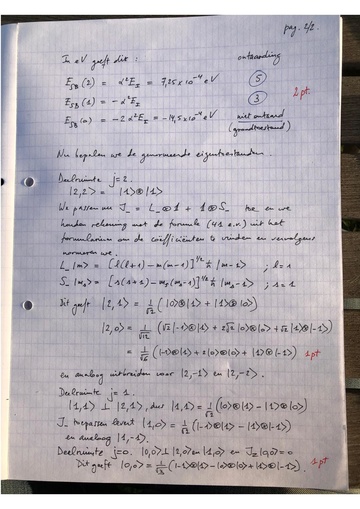 pag. 2/2.
In eV geeft dit : ontaarding
E_SB (2) = α²E_I = 7,25 x 10⁻⁴ eV (5)
E_SB (1) = - α²E_I (3) 2 pt.
E_SB (0) = - 2 α²E_I = - 14,5 x 10⁻⁴ eV niet ontaard
(grondtoestand).
Nu bepalen we de genormeerde eigentoestanden.
Deelruimte j=2.
|2,2> = |1>⊗|1>
We passen nu J_ = L_⊗1 + 1⊗S_ toe en we
houden rekening met de formule (41 e.v.) uit het
formularium om de coëfficiënten te vinden en vervolgens
normeren we.
L_ |m> = [l(l+1) - m(m-1)]^1/2 ħ |m-1> ; l=1
S_ |m_s> = [s(s+1) - m_s(m_s-1)]^1/2 ħ |m_s-1> ; s=1
Dit geeft |2,1> = 1/√2 (|0>⊗|1> + |1>⊗|0>)
|2,0> = 1/√12 (√2 |-1>⊗|1> + 2√2 |0>⊗|0> + √2 |1>⊗|-1>)
= 1/√6 (|-1>⊗|1> + 2|0>⊗|0> + |1>⊗|-1>) 1pt
en analoog uitbreiden voor |2,-1> en |2,-2>.
Deelruimte j=1.
|1,1> ⊥ |2,1>, dus |1,1> = 1/√2 (|0>⊗|1> - |1>⊗|0>)
J_ toepassen levert |1,0> = 1/√2 (|-1>⊗|1> - |1>⊗|-1>)
en analoog |1,-1>.
Deelruimte j=0. |0,0> ⊥ |2,0> en |1,0> en J_z|0,0>=0
Dit geeft |0,0> = 1/√3 (|-1>⊗|1> - |0>⊗|0> + |1>⊗|-1>). 1pt